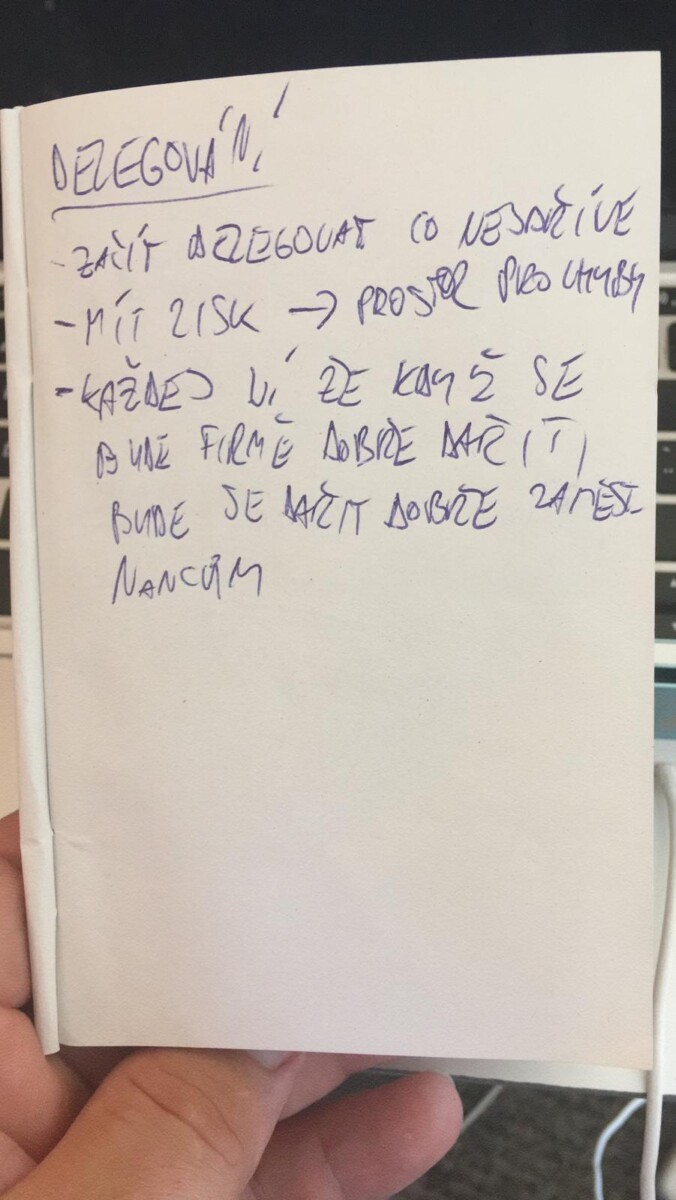 DELEGOVÁNÍ
- ZAČÍT DELEGOVAT CO NEJDŘÍVE
- MÍT ZISK → PROSTOR PRO CHYBY
- KAŽDEJ VÍ ŽE KDYŽ SE
BUDE FIRMĚ DOBŘE DAŘIT,
BUDE SE DAŘIT DOBŘE ZAMĚST
NANCŮM